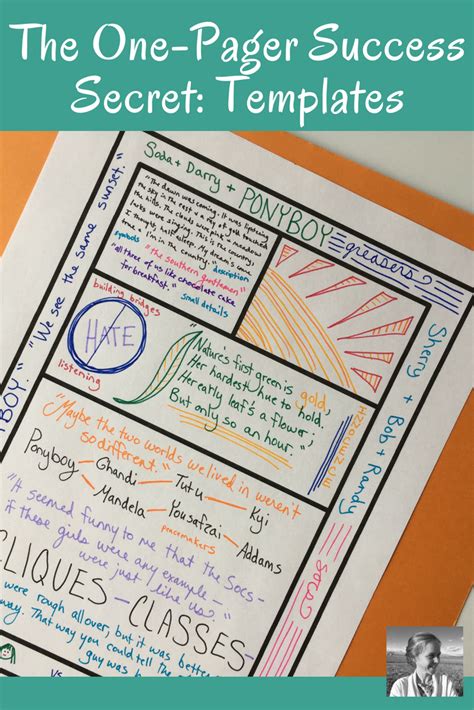 The One-Pager Success
Secret: Templates
Soda + Darry + PONYBOY
greasers
"The dawn was coming. It was lightening
the sky in the east + a ray of gold touched
the hills. The clouds were pink + meadow
larks were singing. This is the country,
I thought, half asleep. My dream's come
true + I'm in the country."
description
symbols
"the southern gentleman"
"all three of us like chocolate cake
for breakfast."
small details
"We see the same sunset."
Sherry + Bob + Randy
socs
building bridges
HATE
listening
"Nature's first green is gold,
Her hardest hue to hold.
Her early leaf's a flower;
But only so an hour."
"Maybe the two worlds we lived in weren't
so different."
Ponyboy
Ghandi
Tutu
Kyi
Mandela
Yousafzai
Addams
peacemakers
"It seemed funny to me that the Socs -
if these guys were any example -
were just like us."
CLIQUES - CLASSES -
were rough all over, but it was better
way. That way you could tell the
guy was